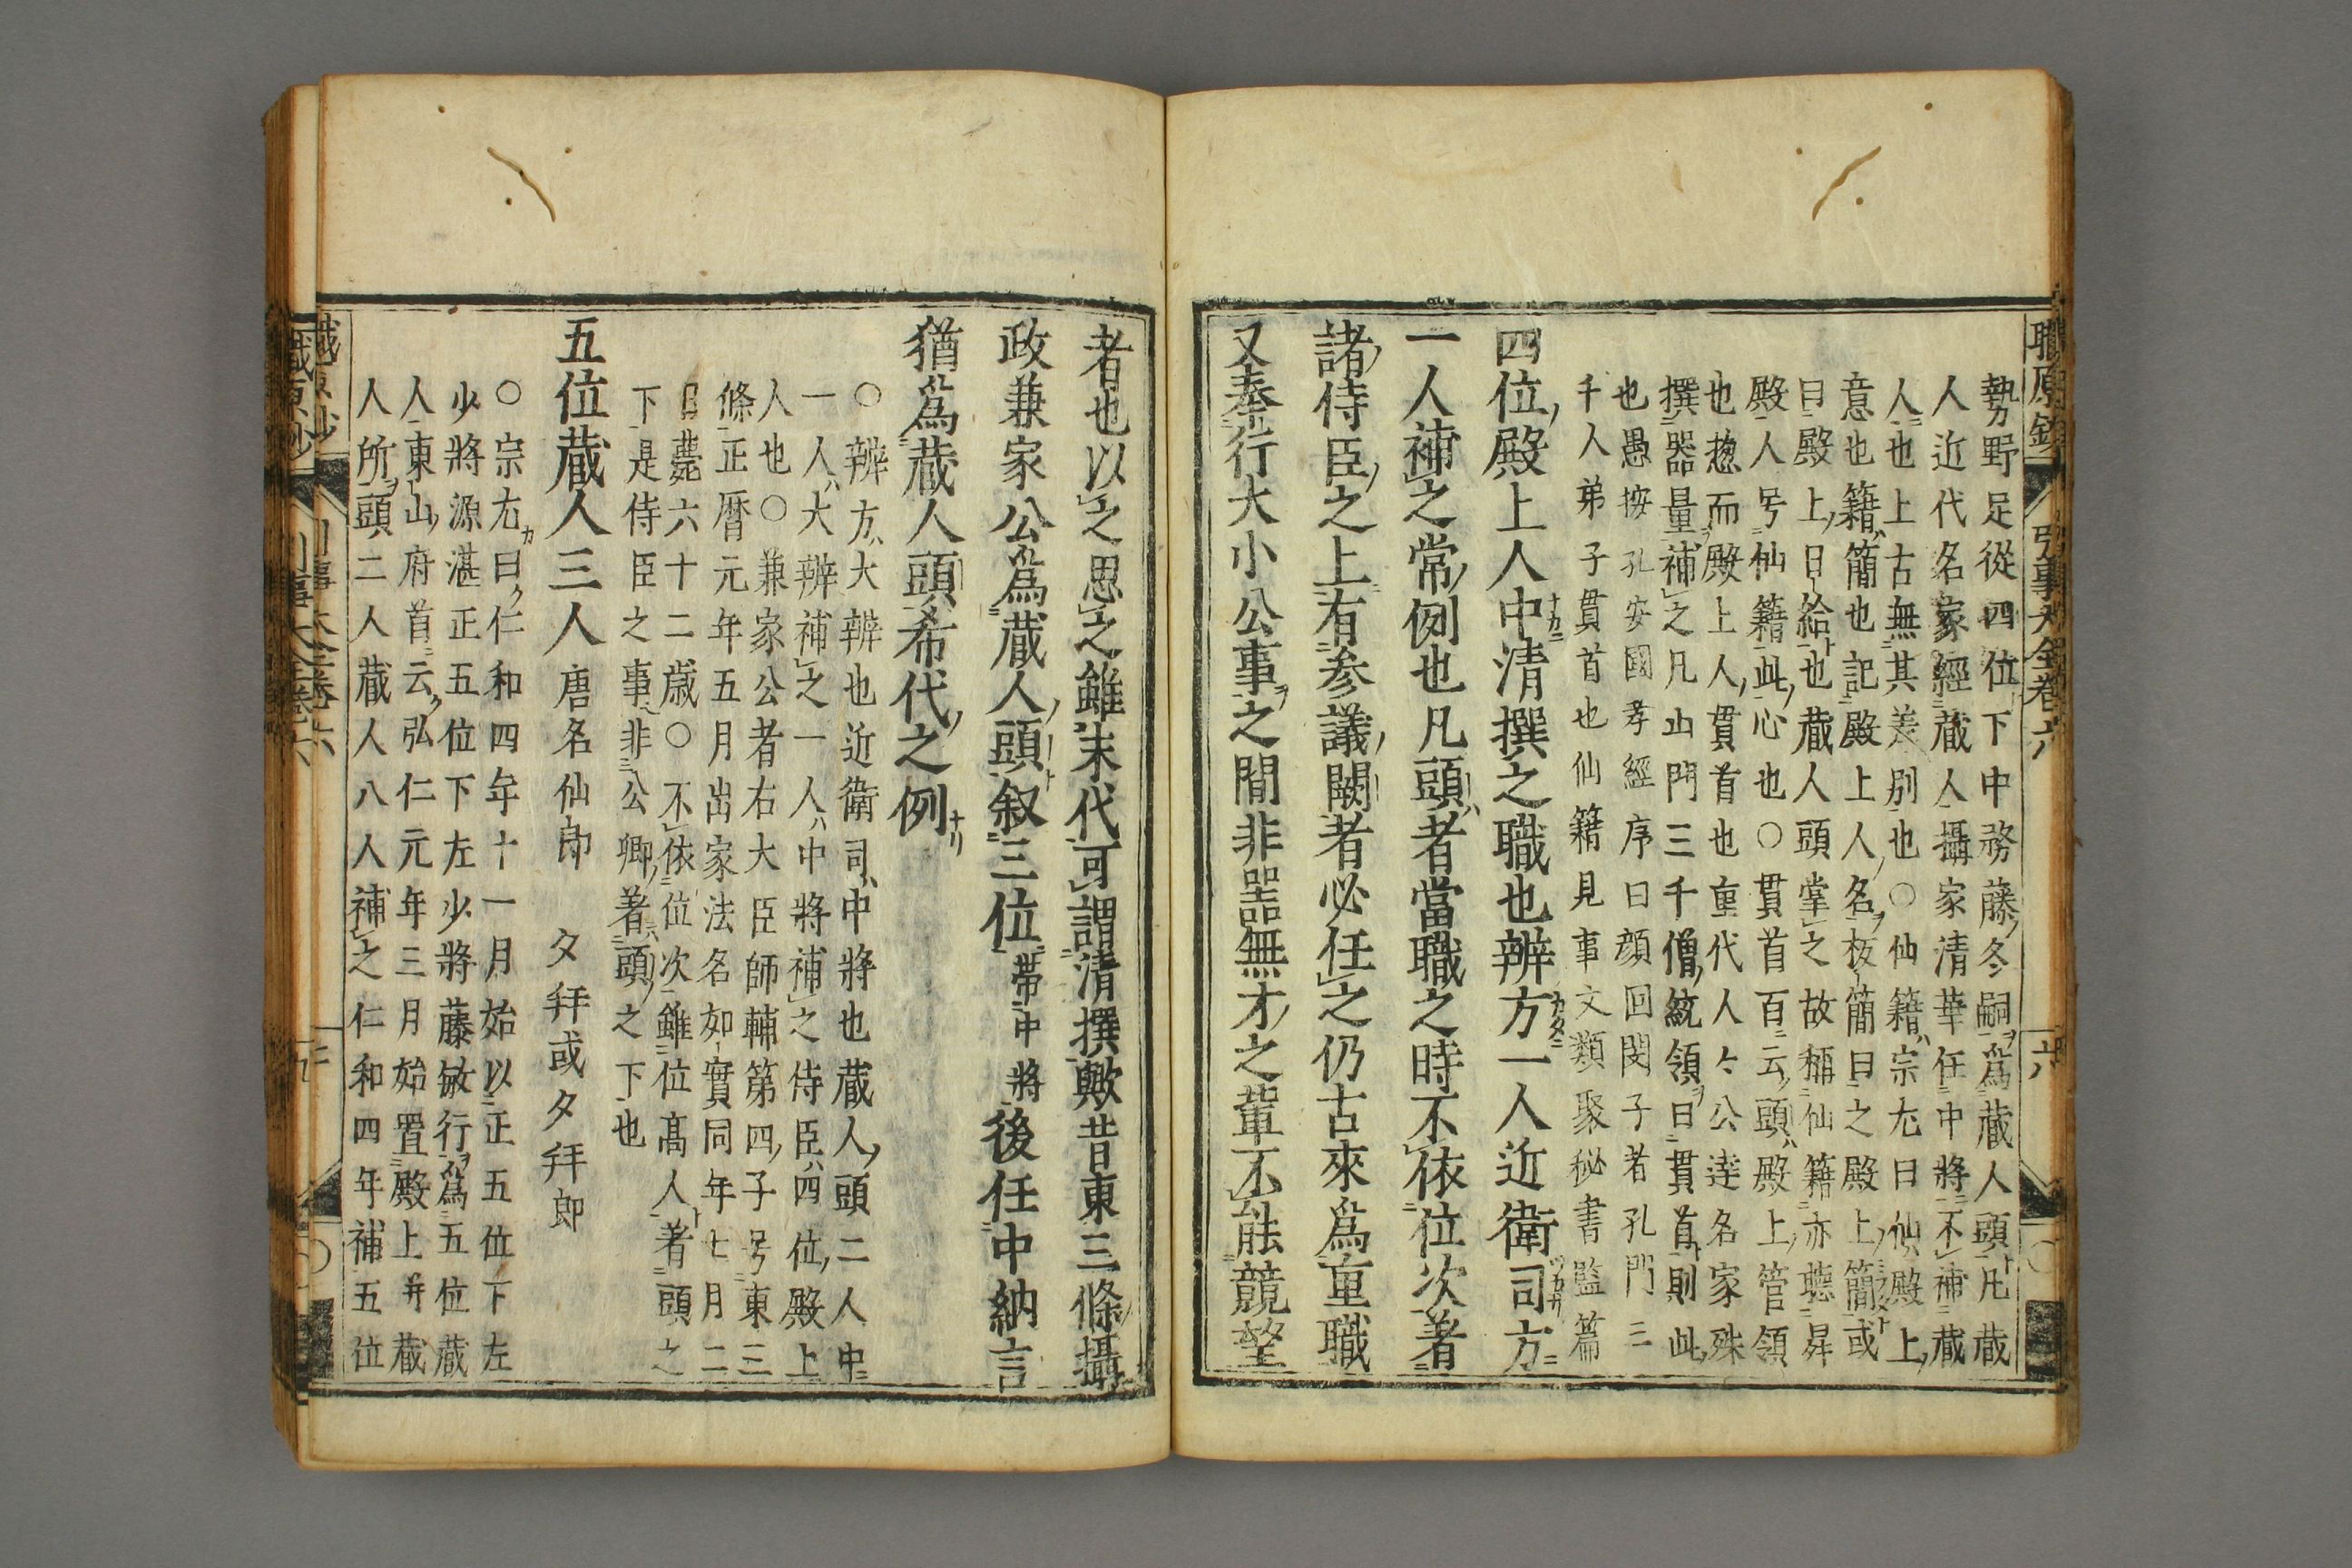 職原鈔
引事大全卷六
六
勢野足從四位下中務藤冬嗣爲蔵人頭凡蔵
人近代名家經蔵人攝家清華任中將不補蔵
人也上古無其差別也○仙籍宗尤曰仙殿上
意也籍簡也記殿上人名板簡曰之殿上簡或
曰殿上日給也蔵人頭掌之故稱仙籍亦聽昇
殿人号仙籍此心也○貫首百云頭殿上管領
也惣而殿上人貫首也重代人々公達名家殊
撰器量補之凡山門三千僧統領曰貫首則此
也愚按孔安國孝經序曰顔回閔子者孔門三
千人弟子貫首也仙籍見事文類聚秘書監篇
四位殿上人中清撰之職也辨方一人近衛司方
一人補之常例也凡頭者當職之時不依位次著
諸侍臣之上有参議闕者必任之仍古來爲重職
又奉行大小公事之間非器無才之輩不能競望
者也以之思之雖末代可謂清撰歟昔東三條攝
政兼家公爲蔵人頭叙三位帯中將後任中納言
猶爲蔵人頭希代之例
○辨方大辨也近衛司中將也蔵人頭二人中
一人大辨補之一人中將補之侍臣四位殿上
人也○兼家公者右大臣師輔第四子号東三
條正曆元年五月出家法名如實同年七月二
日薨六十二歳○不依位次雖位髙人著頭之
下是侍臣之事非公卿著頭之下也
五位蔵人三人唐名仙郎　夕拜或夕拜郎
○宗尤曰仁和四年十一月始以正五位下左
少將源湛正五位下左少將藤敏行爲五位蔵
人東山府首云弘仁元年三月始置殿上并蔵
人所頭二人蔵人八人補之仁和四年補五位